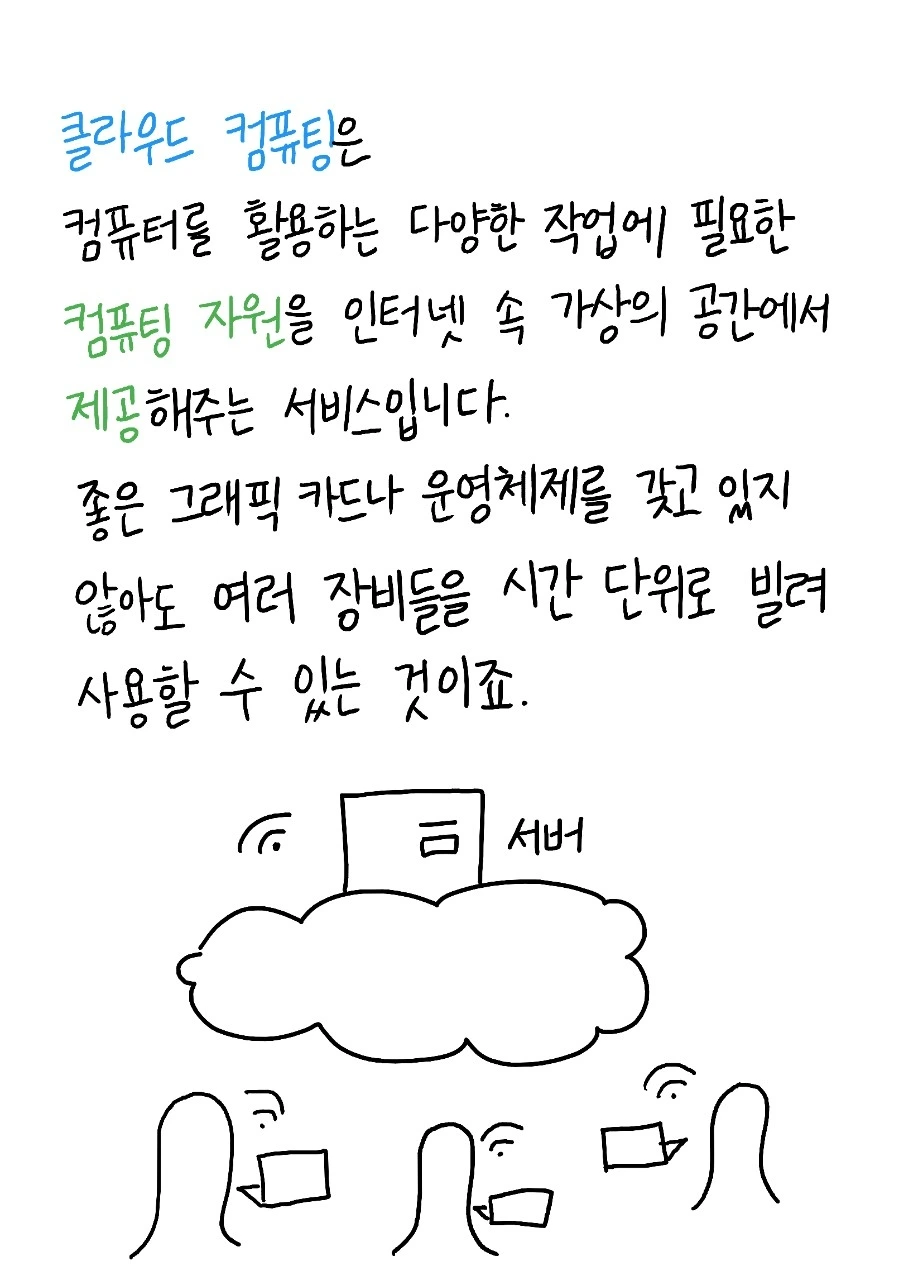 클라우드 컴퓨팅은
컴퓨터를 활용하는 다양한 작업에 필요한
컴퓨팅 자원을 인터넷 속 가상의 공간에서
제공해주는 서비스입니다.
좋은 그래픽 카드나 운영체제를 갖고 있지
않아도 여러 장비들을 시간 단위로 빌려
사용할 수 있는 것이죠.
서버